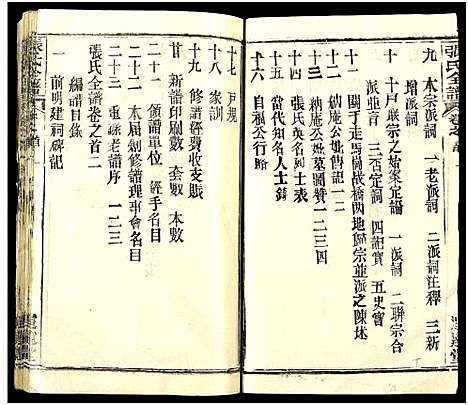 張氏全譜
九 本宗派詞 一老派詞 二派詞注釋 三新
增派詞
十 十戶联宗之始案定論 一派詞 二聯宗合
派並言 三否定詞 四記實 五史實
十一 關于走馬樹战橋两地聯宗並派之陳述
十二 納庵公妣傳記 一二
十三 納庵公妣墓圖贊 一二三四
十四 納庵公列士表
十五 當代知名人士錄
十六 自福公行略
十七 戶規
十八 家訓
十九 修譜經費收支賬
廿 新譜印刷數 套數 本數
二十一 領譜單位 經手名目
二十二 本屆續修譜理事會名目
二十三 重錄老譜序 一二三
張氏全譜卷之首二
編譜目錄
一 前明建祠碑記
張氏全譜